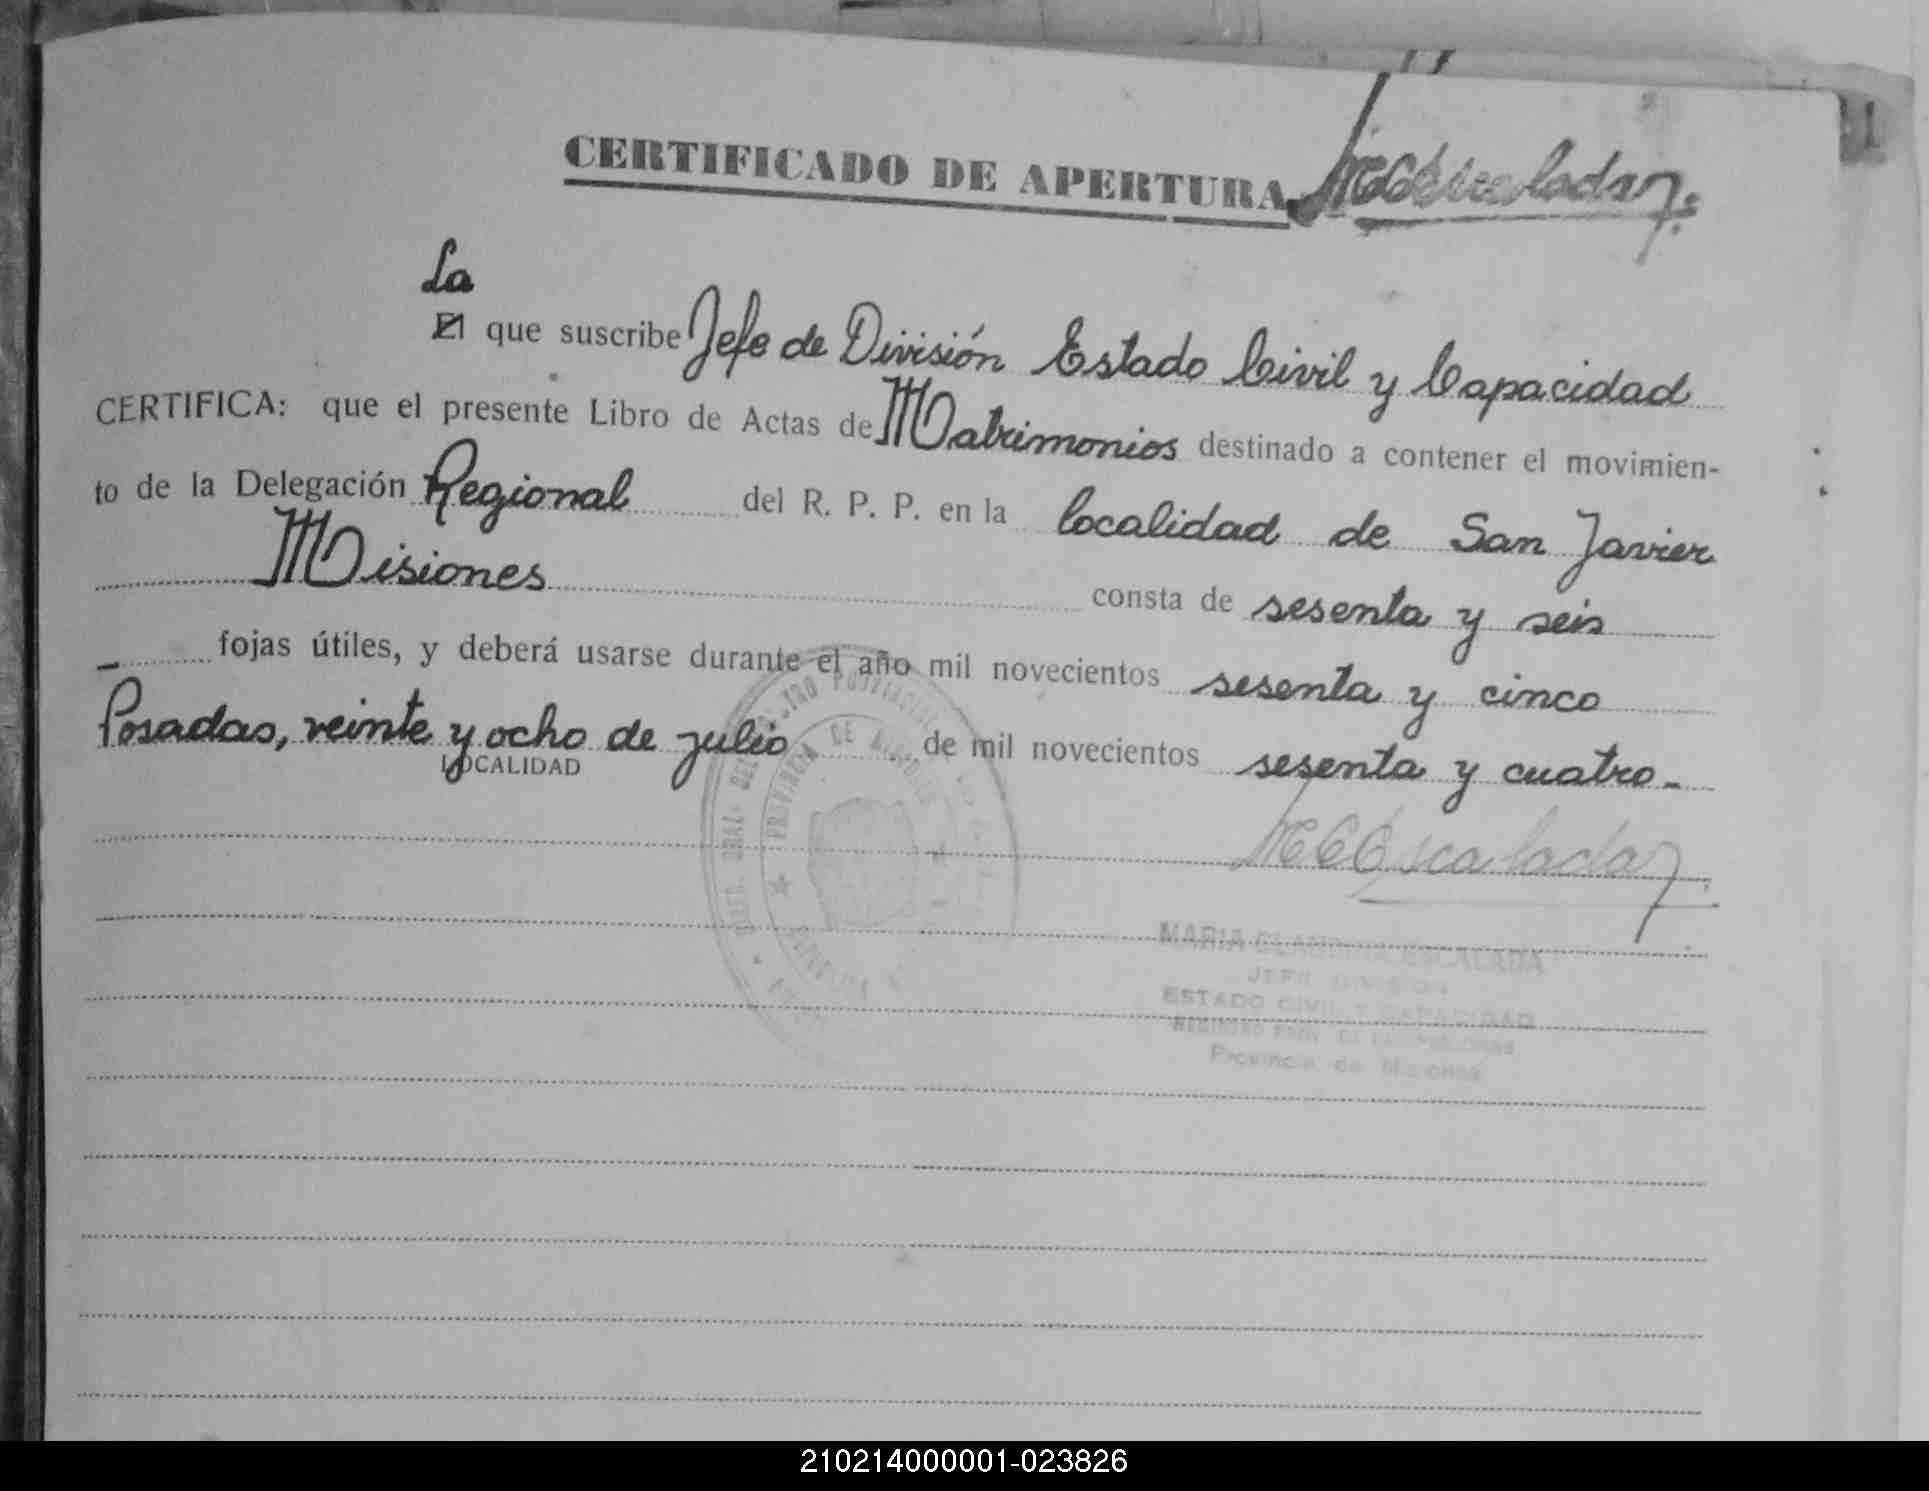 CERTIFICADO DE APERTURA
La
El que suscribe Jefe de División Estado Civil y Capacidad
CERTIFICA: que el presente Libro de Actas de Matrimonios destinado a contener el movimien-
to de la Delegación Regional del R. P. P. en la localidad de San Javier
Misiones consta de sesenta y seis
fojas útiles, y deberá usarse durante el año mil novecientos sesenta y cinco
Posadas, veinte y ocho de julio de mil novecientos sesenta y cuatro-
LOCALIDAD
Escalada
MARIA ESCALADA
JEFE DIVISION
ESTADO CIVIL Y CAPACIDAD
Provincia de Misiones
PROVINCIA DE MISIONES
210214000001-023826